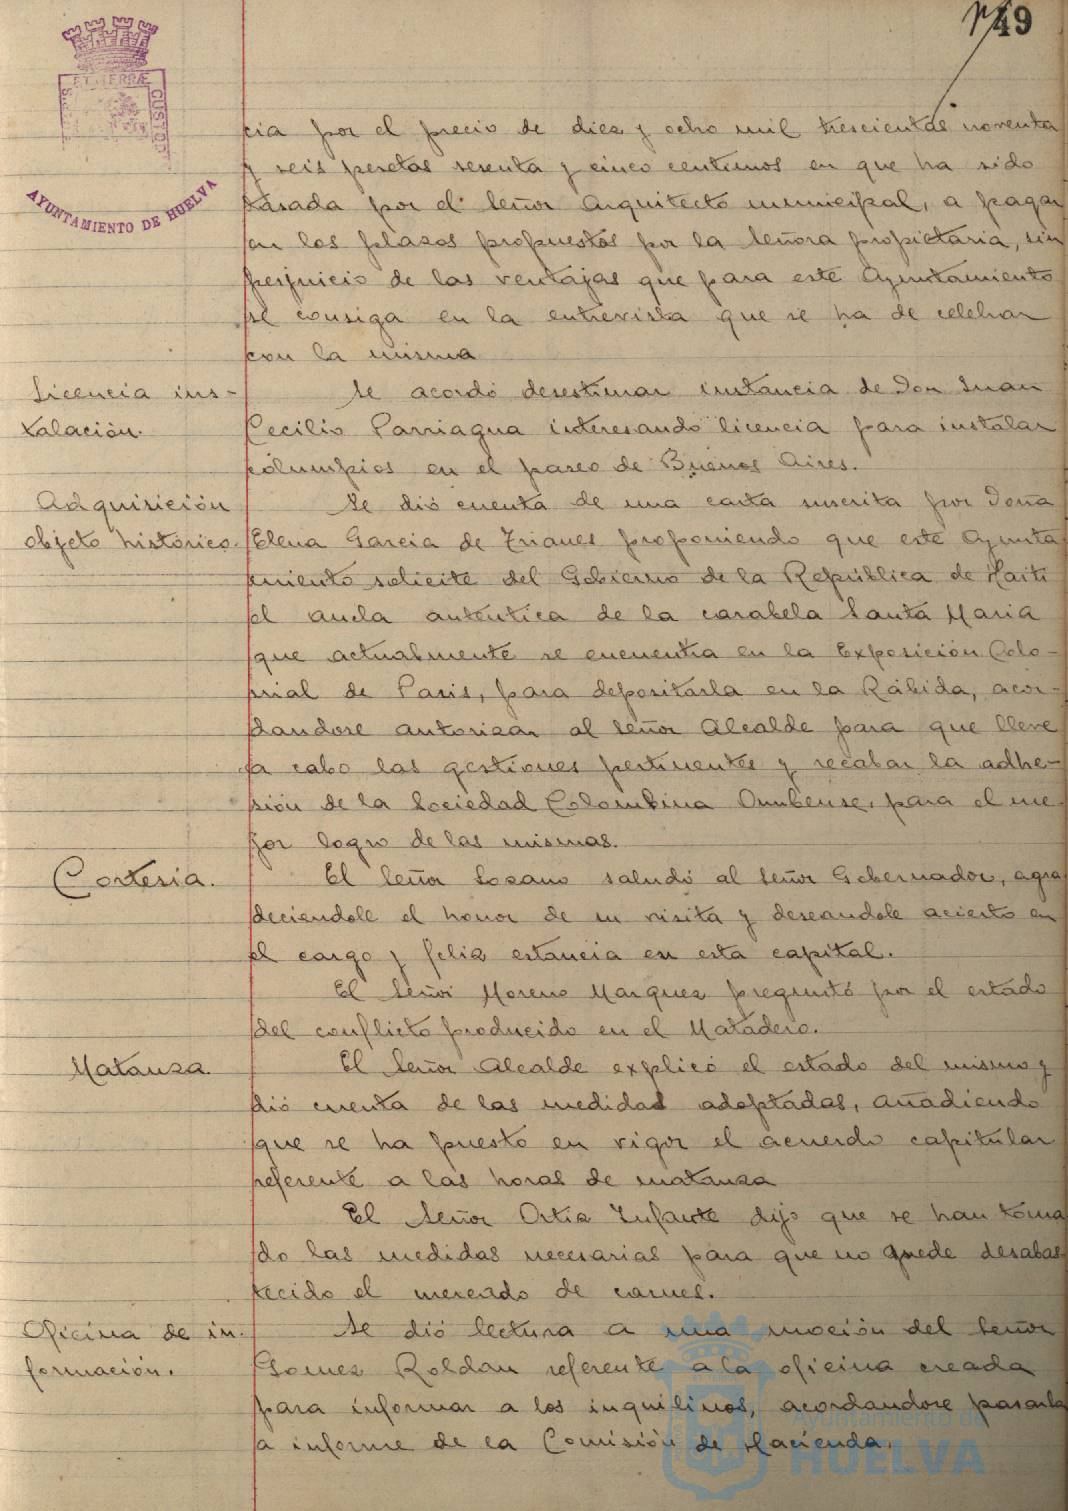 49
ET TERRÆ
CUSTOD
AYUNTAMIENTO DE HUELVA
cia por el precio de diez y ocho mil trescientas noventa
y seis pesetas sesenta y cinco centimos en que ha sido
tasada por el Señor Arquitecto municipal, a pagar
en los plazos propuestos por la Señora propietaria, sin
perjuicio de las ventajas que para este Ayuntamiento
se consiga en la entrevista que se ha de celebrar
con la misma
Licencia ins-
talación.
Se acordó desestimar instancia de Don Juan
Cecilio Parriagua interesando licencia para instalar
columpios en el paseo de Buenos Aires.
Adquisición
objeto histórico.
Se dió cuenta de una carta suscrita por Doña
Elena Garcia de Trianes proponiendo que este Ayunta
miento solicite del Gobierno de la República de Haiti
el ancla auténtica de la carabela Santa Maria
que actualmente se encuentra en la Exposición Colo-
nial de Paris, para depositarla en la Rábida, acor-
dandose autorizar al Señor Alcalde para que lleve
a cabo las gestiones pertinentes y recabar la adhe-
sión de la Sociedad Colombina Onubense, para el me-
jor logro de las mismas.
Cortesia.
El Señor Lozano saludó al Señor Gobernador, agra
deciendole el honor de su visita y deseandole acierto en
el cargo y feliz estancia en esta capital.
El Señor Moreno Marquez preguntó por el estado
del conflicto producido en el Matadero.
Matanza.
El Señor Alcalde explicó el estado del mismo y
dió cuenta de las medidas adoptadas, añadiendo
que se ha puesto en vigor el acuerdo capitular
referente a las horas de matanza
El Señor Ortiz Infante dijo que se han toma
do las medidas necesarias para que no quede desabas
tecido el mercado de carnes.
Oficina de in-
formación.
Se dió lectura a una moción del Señor
Gomez Roldan referente a la oficina creada
para informar a los inquilinos, acordandose pasarla
a informe de la Comisión de Hacienda.
Ayuntamiento de
HUELVA